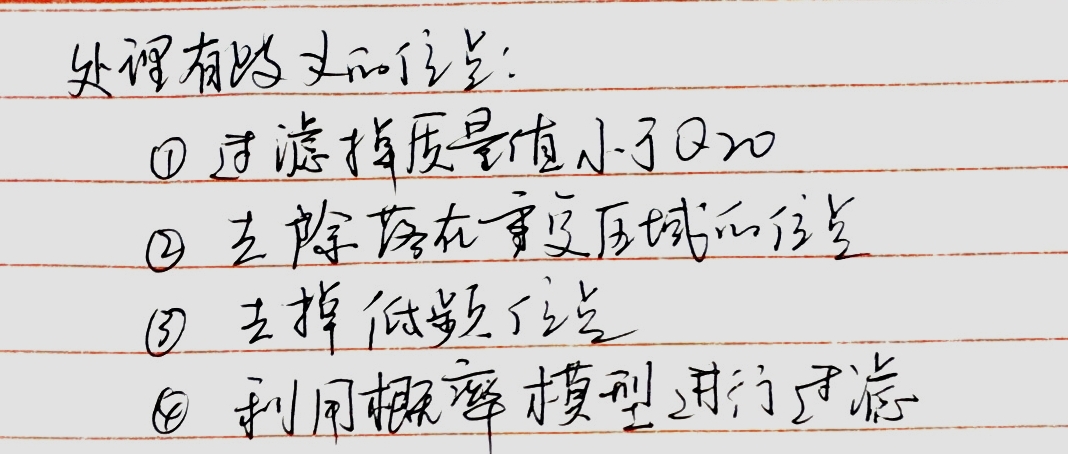 处理有歧义的位点:
① 过滤掉质量值小于Q20
② 去除落在重复区域的位点
③ 去掉低频位点
④ 利用概率模型进行过滤